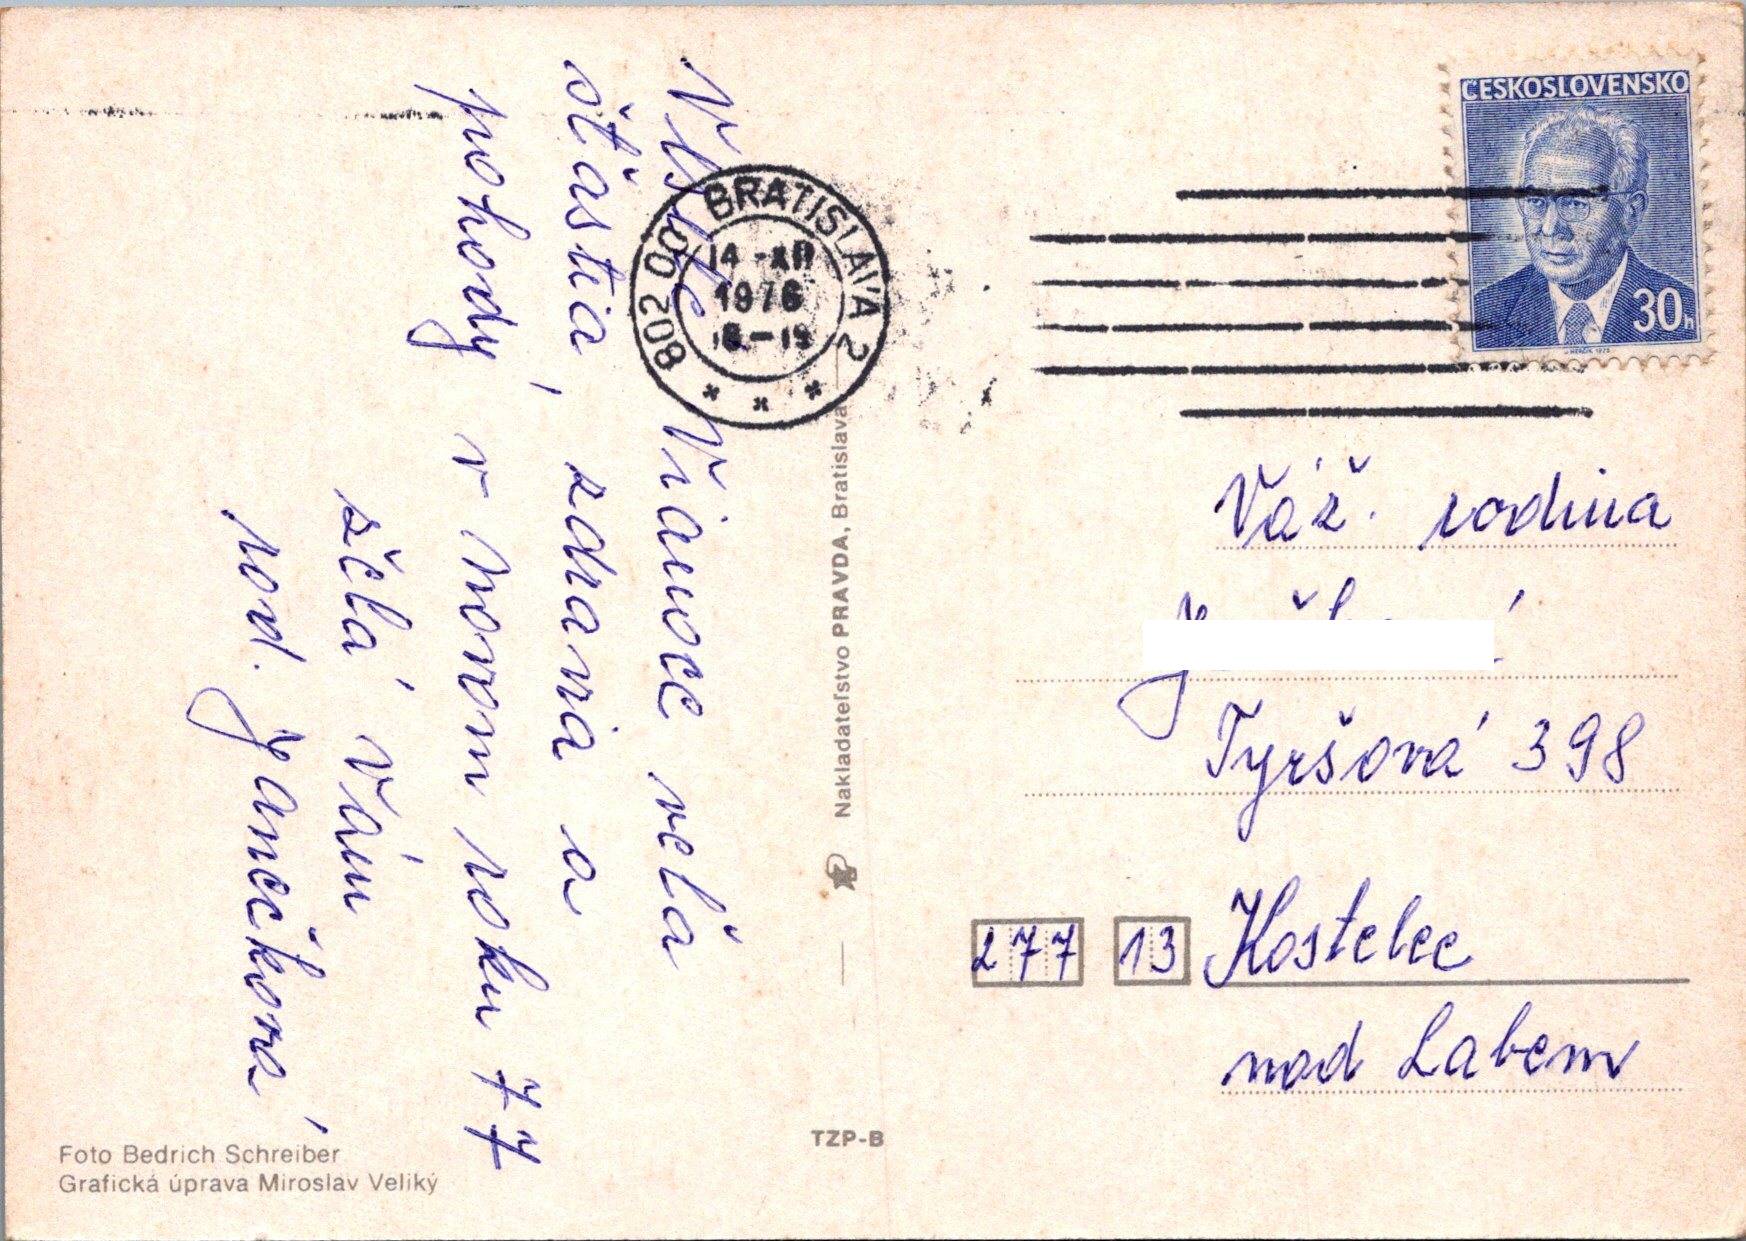 Veselé Vianoce veľa
šťastia, zdravia a
pohody v novom roku 77
želá Vám
rod. Janečková
Foto Bedrich Schreiber
Grafická úprava Miroslav Veliký
Nakladateľstvo PRAVDA, Bratislava
TZP-B
802 00 BRATISLAVA 2
14 -XII
1976
-19
ČESKOSLOVENSKO
30h
Váž. rodina
Tyršová 398
277 13 Kostelec
nad Labem